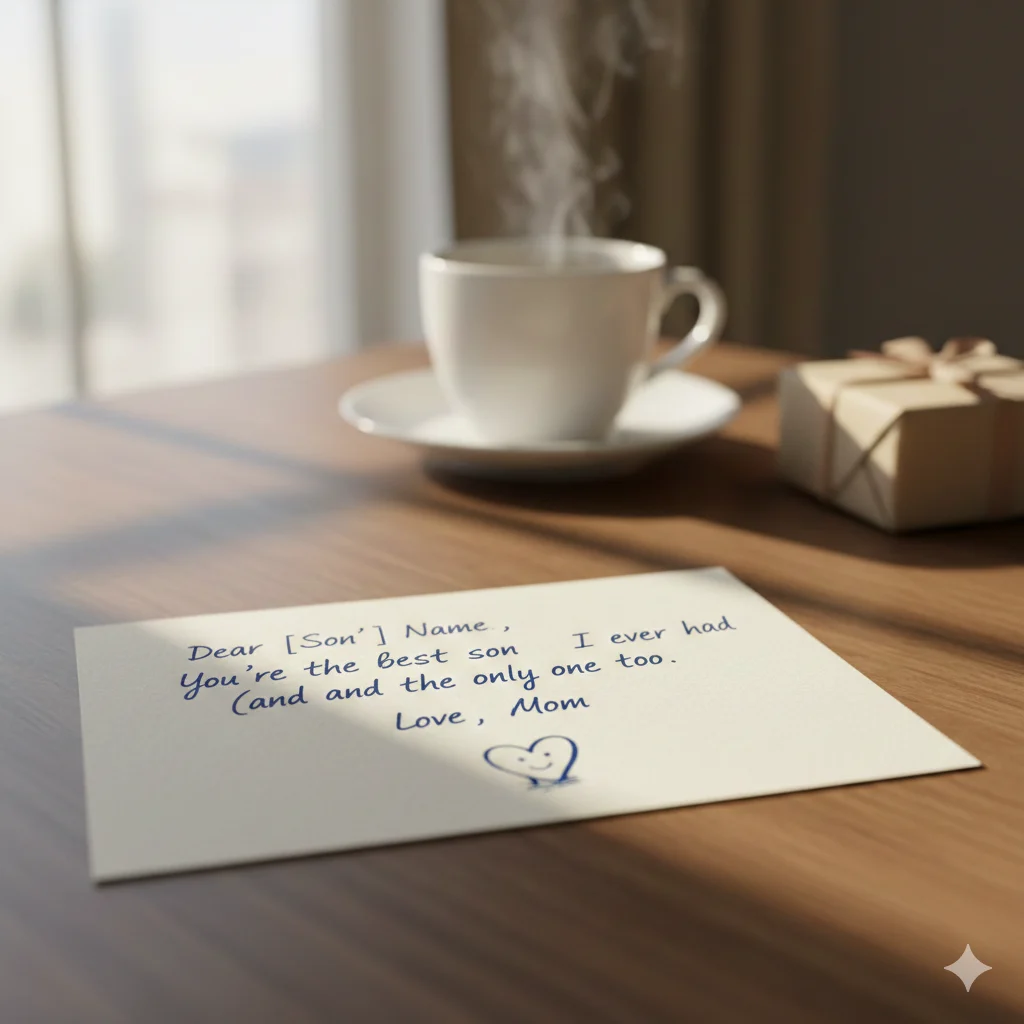 Dear [Son'] Name,
You're the Best son I ever had
(and and the only one too.
Love, Mom